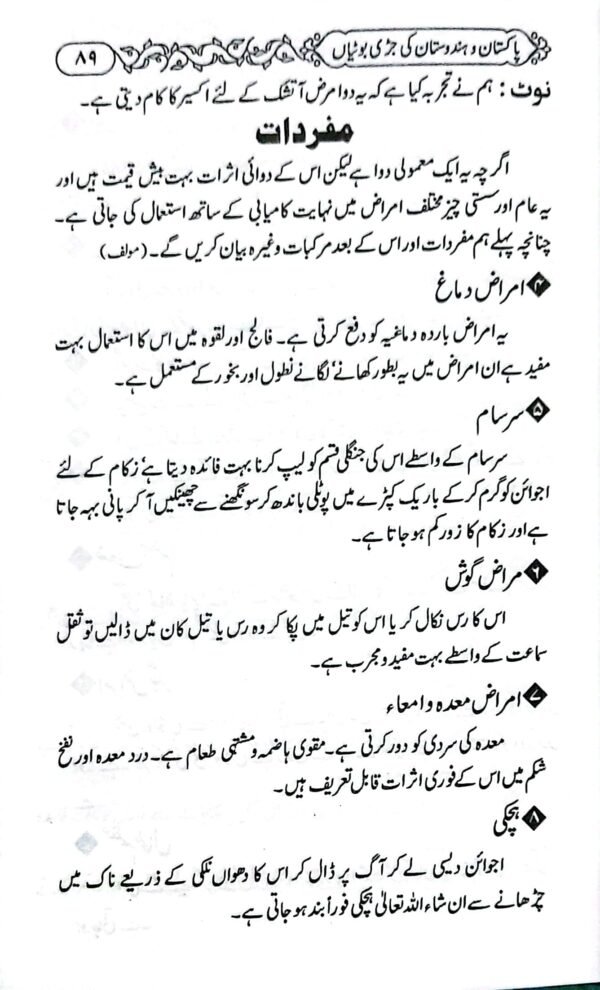 پاکستان و ہندوستان کی جڑی بوٹیاں
۸۹
نوٹ: ہم نے تجربہ کیا ہے کہ یہ دوا مرض آتشک کے لئے اکسیر کا کام دیتی ہے۔
مفردات
اگر چہ یہ ایک معمولی دوا ہے لیکن اس کے دوائی اثرات بہت بیش قیمت ہیں اور
یہ عام اور سستی چیز مختلف امراض میں نہایت کامیابی کے ساتھ استعمال کی جاتی ہے۔
چنانچہ پہلے ہم مفردات اور اس کے بعد مرکبات وغیرہ بیان کریں گے۔ (مولف)
۴ امراض دماغ
یہ امراض باردہ دماغیہ کو دفع کرتی ہے۔ فالج اور لقوہ میں اس کا استعمال بہت
مفید ہے ان امراض میں یہ بطور کھانے، لگانے نطول اور بخور کے مستعمل ہے۔
۵ سرسام
سرسام کے واسطے اس کی جنگلی قسم کو لیپ کرنا بہت فائدہ دیتا ہے، زکام کے لئے
اجوائن کو گرم کر کے باریک کپڑے میں پوٹلی باندھ کر سونگھنے سے چھینکیں آ کر پانی بہہ جاتا
ہے اور زکام کا زور کم ہو جاتا ہے۔
۶ مراض گوش
اس کا رس نکال کر یا اس کو تیل میں پکا کر وہ رس یا تیل کان میں ڈالیں تو ثقل
سماعت کے واسطے بہت مفید و مجرب ہے۔
۷ امراض معدہ و امعاء
معدہ کی سردی کو دور کرتی ہے۔ مقوی ہاضمہ و مشتہی طعام ہے۔ درد معدہ اور نفخ
شکم میں اس کے فوری اثرات قابل تعریف ہیں۔
۸ ہچکی
اجوائن دیسی لے کر آگ پر ڈال کر اس کا دھواں نلکی کے ذریعے ناک میں
چڑھانے سے ان شاء اللہ تعالیٰ ہچکی فوراً بند ہو جاتی ہے۔